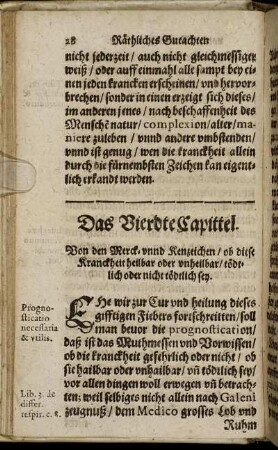 28 Räthliches Gutachten
nicht jederzeit / auch nicht gleichmessiger
weiß / oder auff einmahl alle sampt bey ei-
nen jeden krancken erscheinen / vnd hervor-
brechen / sonder in einen erzeigt sich dieses /
im anderen jenes / nach beschaffenheit des
Menschẽ natur / complexion / alter / ma-
niere zuleben / vnnd andere vmbstenden /
vnd ist genug / wen die kranckheit allein
durch die fürnembsten Zeichen kan eigent-
lich erkandt werden.
Das Vierdte Capittel.
Von den Merck- vnnd Kenzeichen / ob diese
Kranckheit heilbar oder vnheilbar / tödt-
lich oder nicht tödtlich sey.
EHe wir zur Cur vnd heilung dieses
gifftigen Fiebers fortschreitten / soll
man bevor die prognostication /
daß ist das Muthmessen vnd Vorwissen /
ob die kranckheit gefehrlich oder nicht / ob
sie hailbar oder vnhailbar / vñ tödtlich sey /
vor allen dingen woll erwegen vñ betrach-
ten: weil selbiges nicht allein nach Galeni
zeugnuß / dem Medico grosses Lob vnd
Ruhm
Progno-
sticatio
necessaria
& vtilis.
Lib. 3. de
differ.
respir. c. 5.